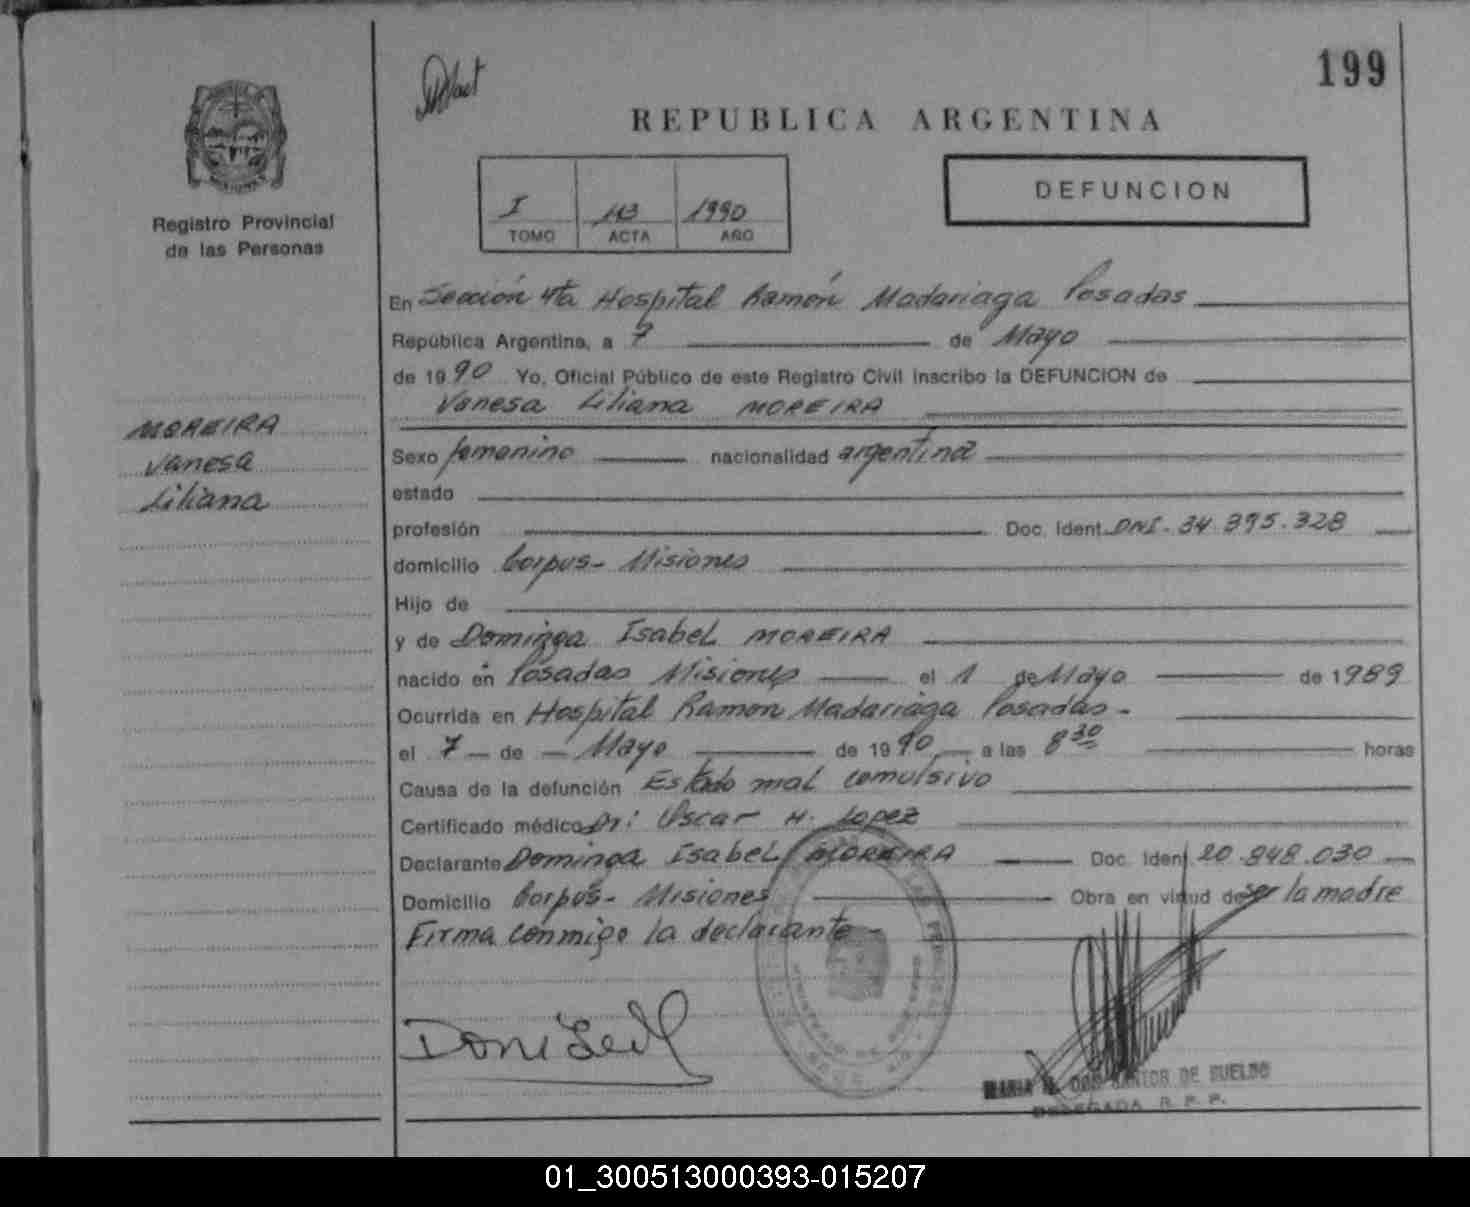 199
REPUBLICA ARGENTINA
DEFUNCION
I 113 1990
TOMO ACTA AÑO
Registro Provincial
de las Personas
MOREIRA
Vanesa
Liliana
En Sección 4ta Hospital Ramón Madariaga Posadas
República Argentina, a 7 de Mayo
de 1990 Yo, Oficial Público de este Registro Civil inscribo la DEFUNCION de
Vanesa Liliana MOREIRA
Sexo femenino nacionalidad argentina
estado
profesión Doc. Ident. DNI. 34.395.328
domicilio Corpus - Misiones
Hijo de
y de Dominga Isabel MOREIRA
nacido en Posadas Misiones el 1 de Mayo de 1989
Ocurrida en Hospital Ramon Madariaga Posadas -
el 7 de Mayo de 1990 a las 8 30 horas
Causa de la defunción Estado mal comulsivo
Certificado médico Dr: Oscar H. Lopez
Declarante Dominga Isabel MOREIRA Doc. Iden 20.848.030
Domicilio Corpus - Misiones Obra en virtud de ser la madre
Firma conmigo la declarante -
MARIA DOS SANTOS DE BUELDO
DELEGADA R. P. P.
01_300513000393-015207